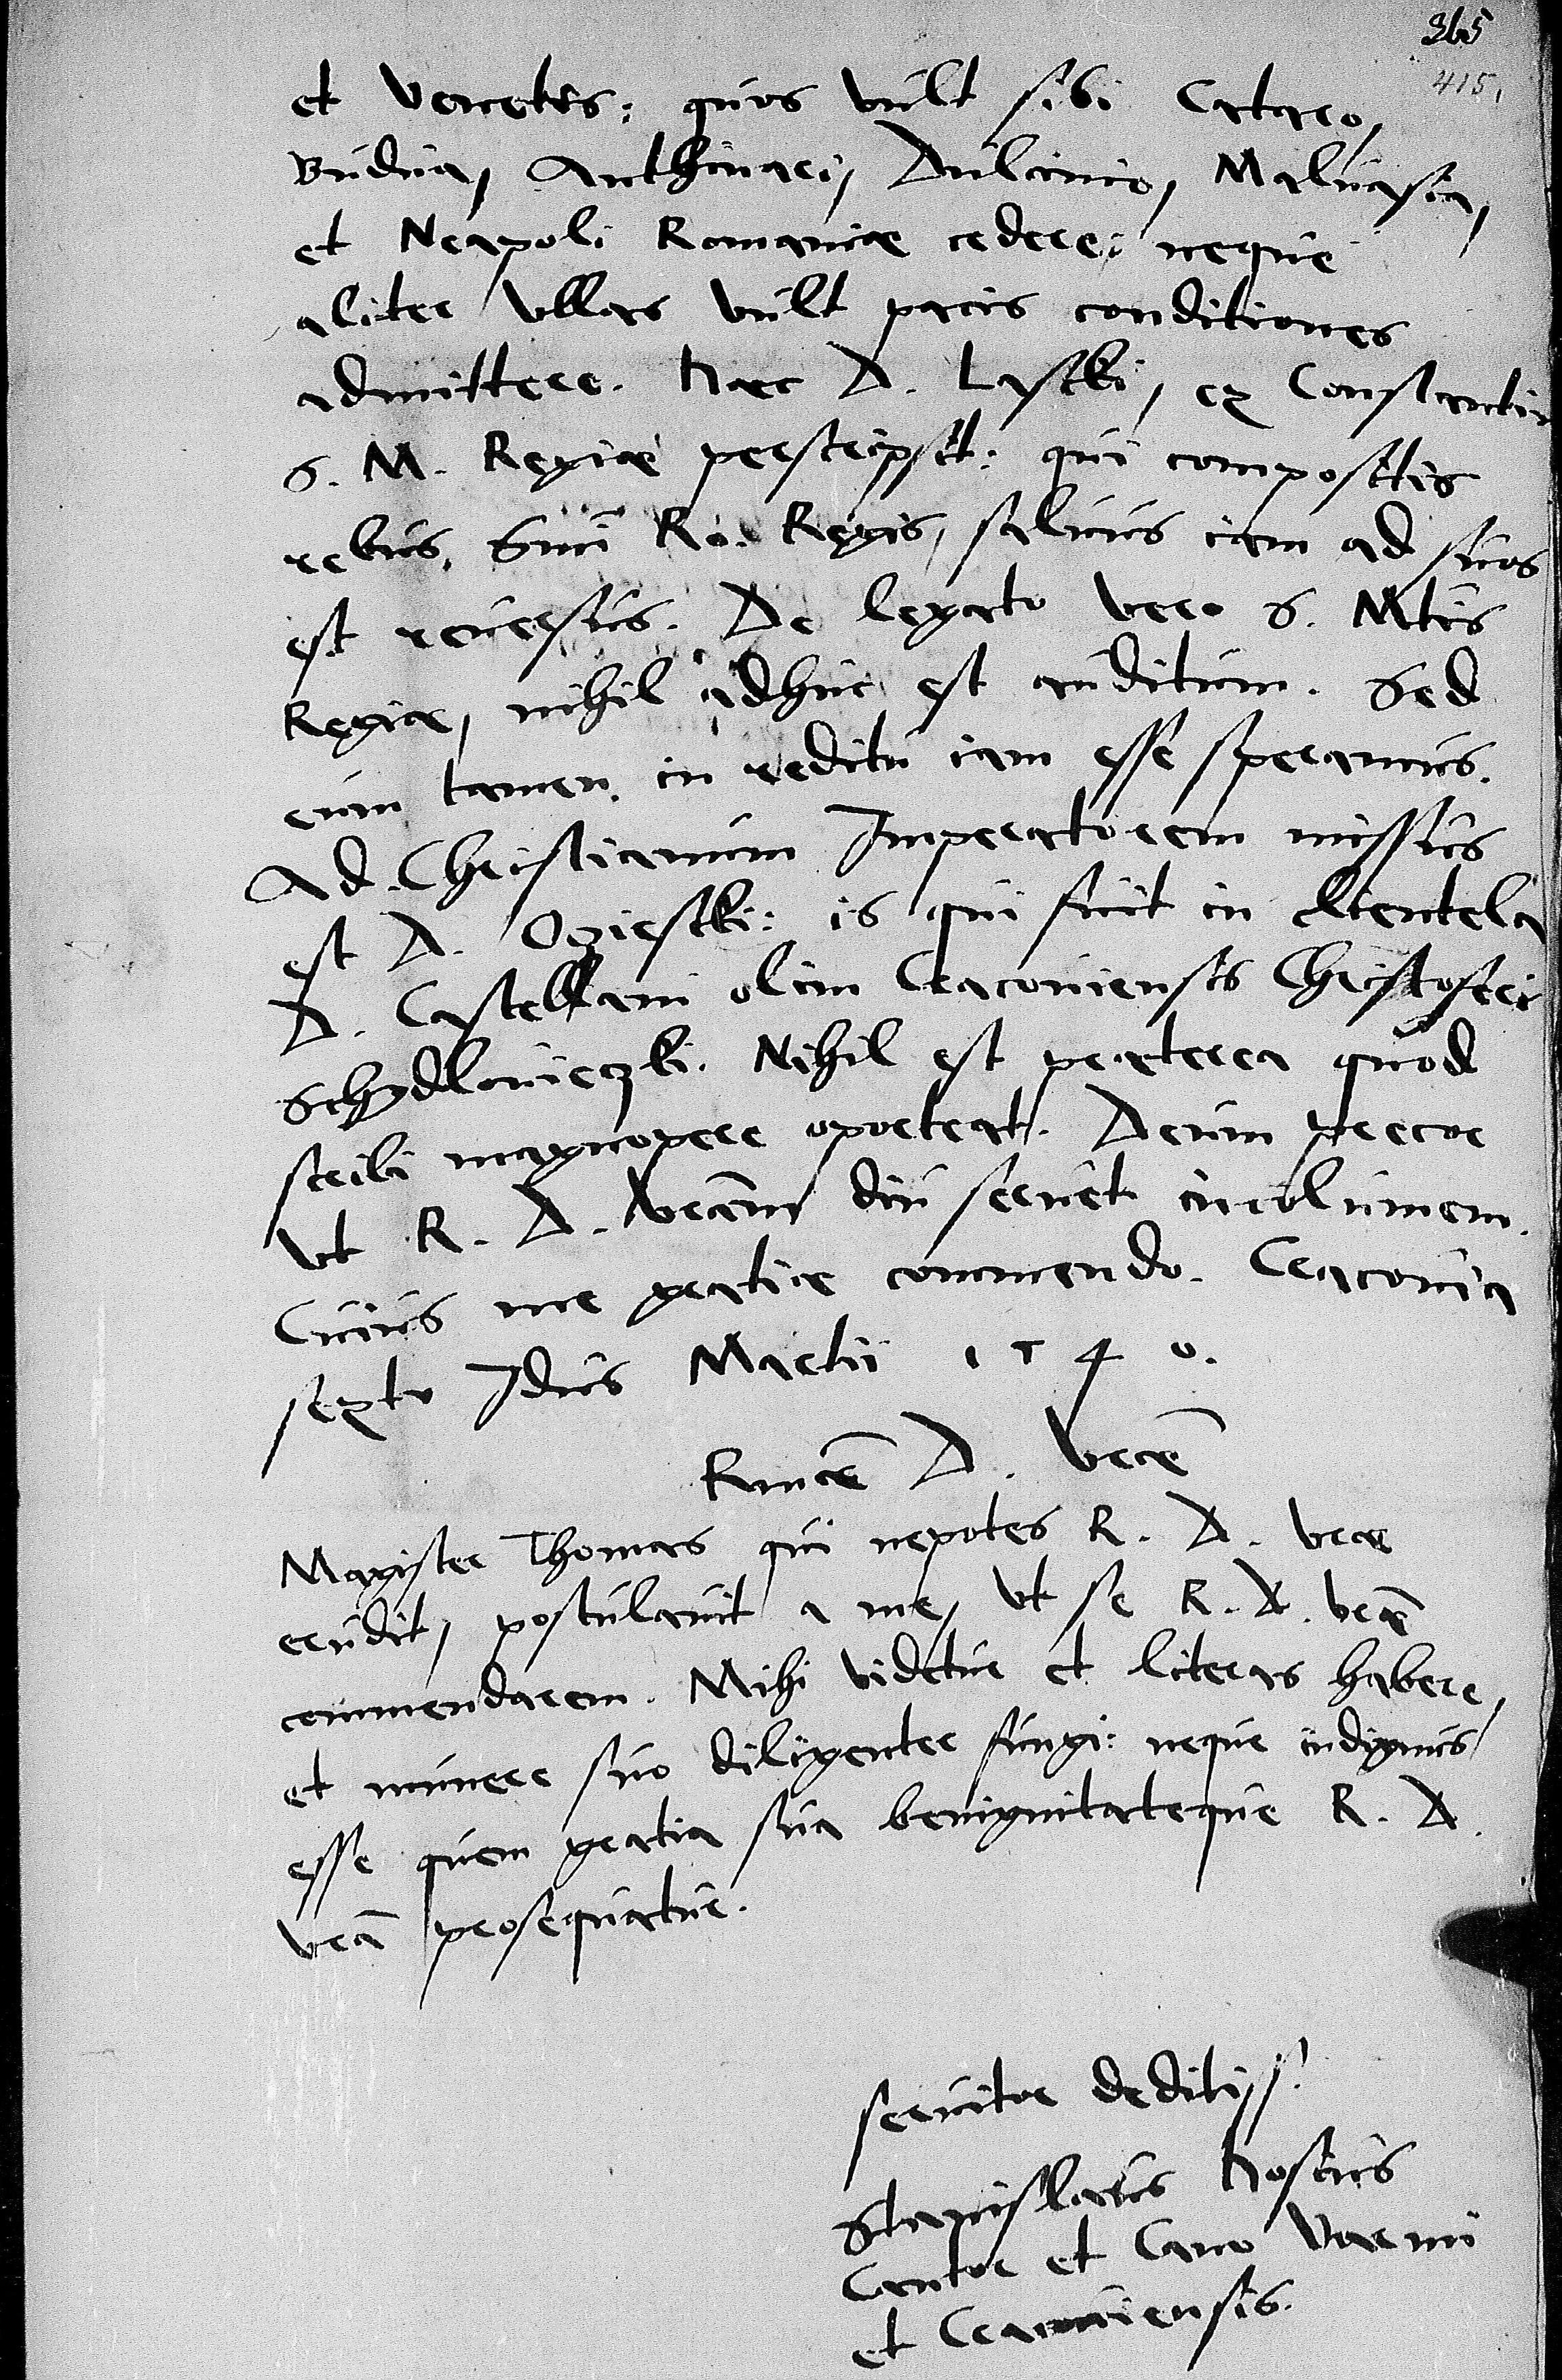 365
415.
et Venetis: quos vult sibi Cataro,
Budua, Anthivari, Dulcinio, Malvasia,
et Neapoli Romaniae cedere: neque
aliter ullas vult pacis conditiones
admittere. Haec D. Laski, ex Constantin
S. M. Regiae perscripsit: qui compositis
rebus, Smi Ro. Regis, salvus iam ad suos
est reversus. De legato vero S. Mtis
Regiae, nihil adhuc est auditum. Sed
eum tamen in reditu iam esse speramus.
Ad Christianum Imperatorem missus
est D. Ozieski: is qui fuit in clientela
D. Castellani olim Cracoviensis Christoferi
Schydlovieczki. Nihil est praeterea quod
scribi magnopere oporteat. Deum precor
ut R. D. vram diu servet incolumem.
Cuius me gratiae commendo. Cracovia
sexto Idus Martii 1540.
Rmae D. vrae
Magister Thomas qui nepotes R. D. vrae
erudit, postulavit a me, ut se R. D. vrae
commendarem. Mihi videtur et literas habere,
et munere suo diligenter fungi: neque indignus
esse quem gratia sua benignitateque R. D.
vra prosequatur.
servitor deditiss.
Stanislaus Hosius
Cantor et Cano Varmi
et Cracoviensis.